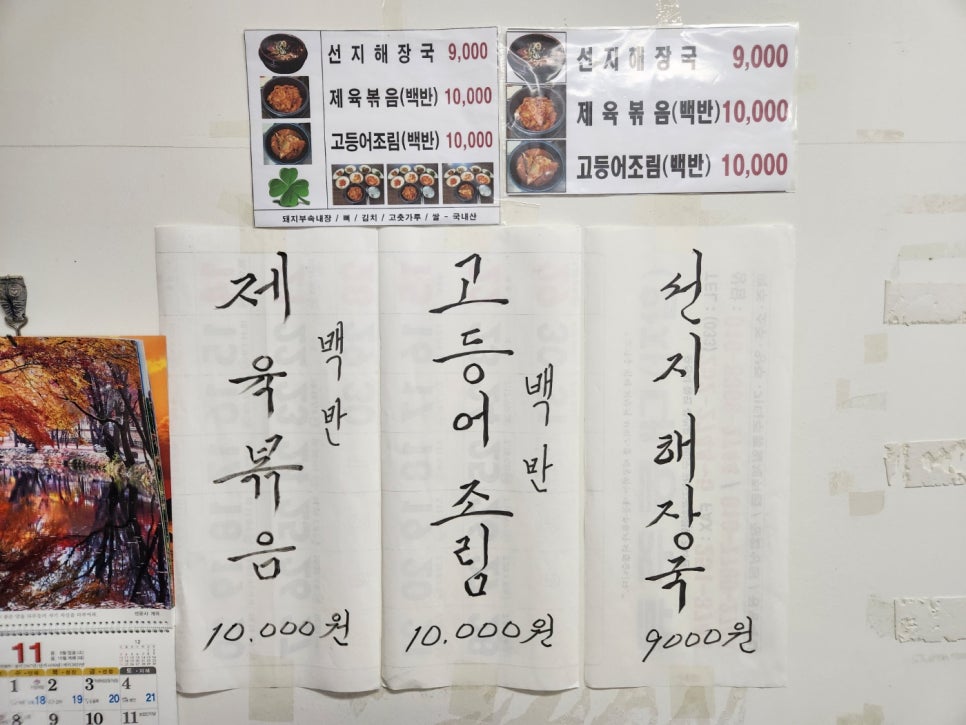 선지해장국 9,000
제육볶음(백반) 10,000
고등어조림(백반) 10,000
돼지부속내장 / 뼈 / 김치 / 고춧가루 / 쌀 - 국내산
선지해장국 9,000
제육볶음(백반) 10,000
고등어조림(백반) 10,000
제육볶음
백반
10.000원
고등어조림
백반
10.000원
선지해장국
9000원
11
12
1 2 3 4
18 19 20 21
8 9 10 11